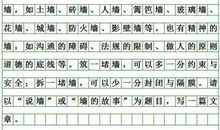 墙，如土墙、砖墙、人墙、篱笆墙、玻璃墙、
花墙、城墙、防火墙、影壁墙等。也有精神的
墙，如沟通的障碍、法规的限制、做人的原则
道德的底线等。筑一堵墙，可以多一分约束与
安全；拆一堵墙，可以少一分封闭与隔膜。请
以“说墙”或“墙的故事”为题目，写一篇文
章。